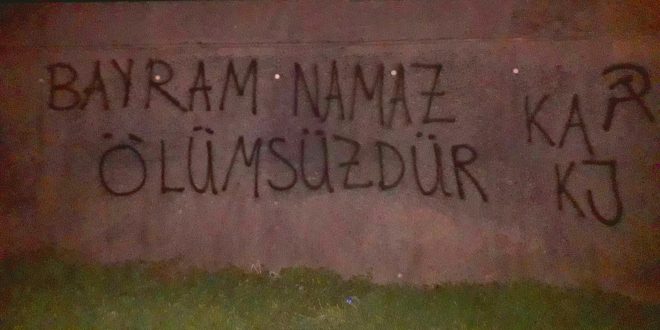 BAYRAM NAMAZ
ÖLÜMSÜZDÜR
KA
KJ